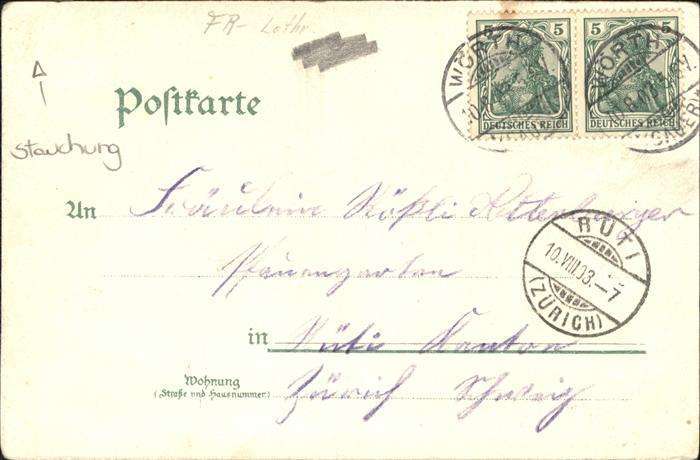 FR- Lothr
5 5 5 5
WÖRTH
WÖRTH
DEUTSCHES REICH DEUTSCHES REICH
Postkarte
Stauchung
An Fräulein Rößli
RÜTI
10.VIII.03.-7
(ZÜRICH)
Pfauengarten
in Rüti Kanton
Wohnung
(Straße und Hausnummer)
Zürich Schweiz